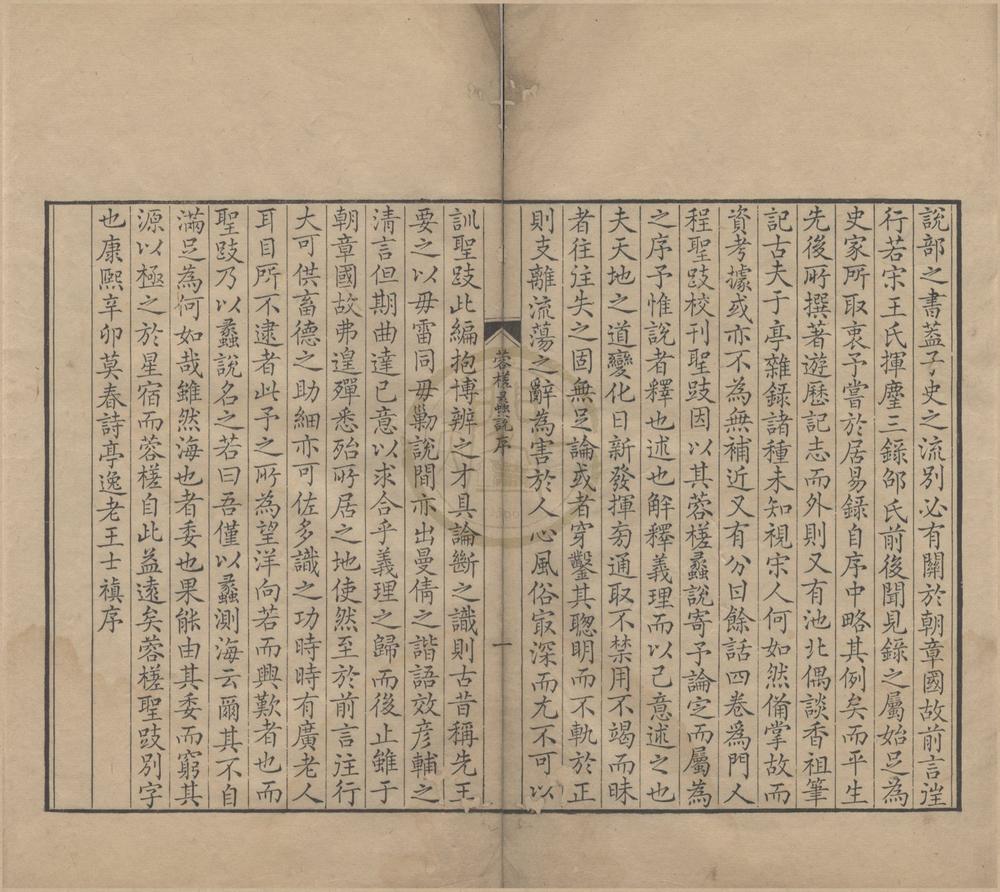 說部之書蓋子史之流別必有關於朝章國故前言徃
行若宋王氏揮麈三錄邵氏前後聞見錄之屬始足為
史家所取衷予嘗於居易錄自序中略其例矣而平生
先後所撰著遊歷記志而外則又有池北偶談香祖筆
記古夫于亭雜錄諸種未知視宋人何如然備掌故而
資考據或亦不為無補近又有分甘餘話四卷為門人
程聖跂校刊聖跂因以其蓉槎蠡說寄予論定而屬為
之序予惟說者釋也述也解釋義理而以己意述之也
夫天地之道變化日新發揮旁通取不禁用不竭而昧
者往往失之固無足論或者穿鑿其聰明而不軌於正
則支離流蕩之辭為害於人心風俗㝡深而尤不可以
蓉槎蠡說序
一
訓聖跂此編抱博辨之才具論斷之識則古昔稱先王
要之以毋雷同毋勦說間亦出曼倩之諧語效彥輔之
清言但期曲達已意以求合乎義理之歸而後止雖于
朝章國故弗遑殫悉殆所居之地使然至於前言往行
大可供畜德之助細亦可佐多識之功時時有廣老人
耳目所不逮者此予之所為望洋向若而興歎者也而
聖跂乃以蠡說名之若曰吾僅以蠡測海云爾其不自
滿足為何如哉雖然海也者委也果能由其委而窮其
源以極之於星宿而蓉槎自此益遠矣蓉槎聖跂別字
也康熙辛卯莫春詩亭逸老王士禛序